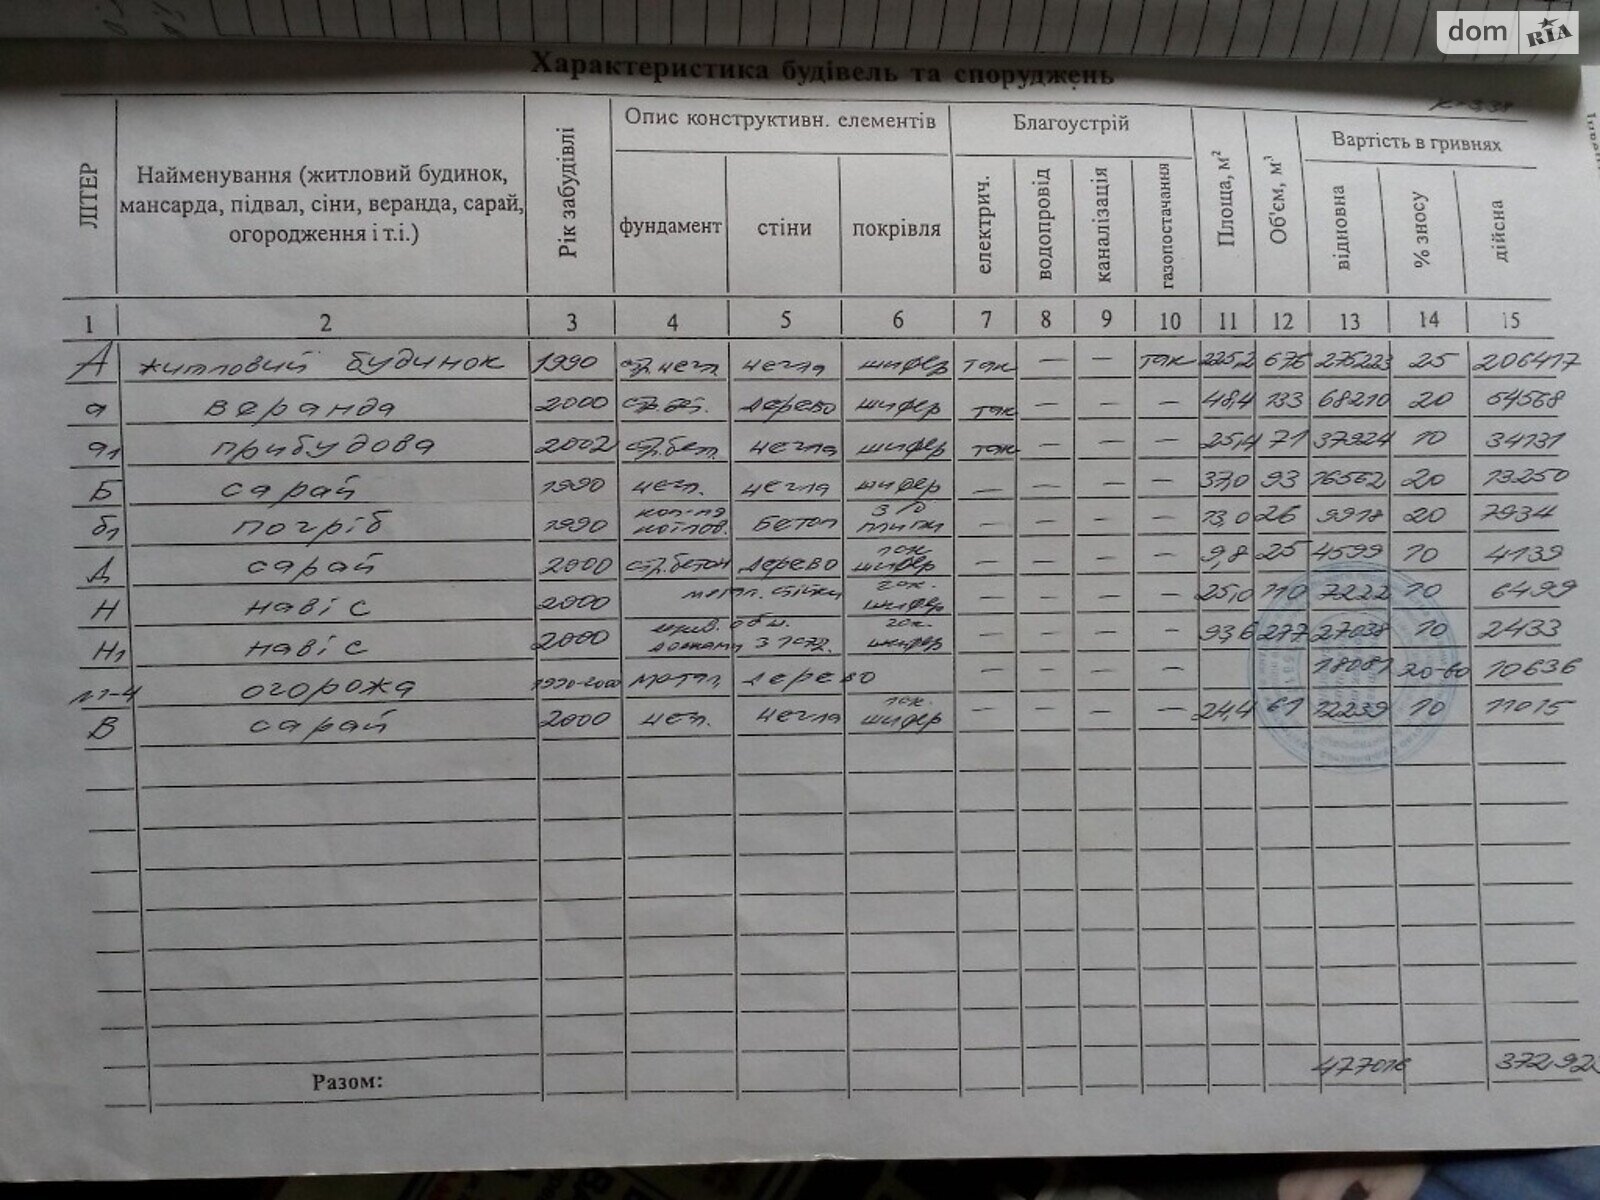 dom RIA
Характеристика будівель та споруджень
ЛІТЕР
Найменування (житловий будинок, мансарда, підвал, сіни, веранда, сарай, огородження і т.і.)
Рік забудівлі
Опис конструктивн. елементів
фундамент стіни покрівля
Благоустрій
електрич. водопровід каналізація газопостачання
Площа, м²
Об'єм, м³
Вартість в гривнях
відновна % зносу дійсна
1 2 3 4 5 6 7 8 9 10 11 12 13 14 15
А житловий будинок 1990 цегла шифер так — — так 225,2 676 275223 25 206417
а веранда 2000 дерево шифер так — — — 48,4 133 68210 20 54568
а1 прибудова 2002 стр.бет. цегла шифер так — — — 25,4 71 37924 10 34131
Б сарай 1990 цегл. цегла шифер — — — — 37,0 93 16562 20 13250
б1 погріб 1990 котлов. бетон з/б плити — — — — 13,0 26 9918 20 7934
Д сарай 2000 стр.бетон дерево шифер — — — — 9,8 25 4599 10 4139
Н навіс 2000 метал. стійки шифер — — — — 25,0 110 7222 10 6499
Н1 навіс 2000 шифер — — — — 93,6 277 27038 10 2433
№1-4 огорожа 1990-2000 метал, дерево — — — — 18081 20-60 10636
В сарай 2000 цегл. цегла шифер — — — — 24,4 61 12239 10 11015
Разом: 477016